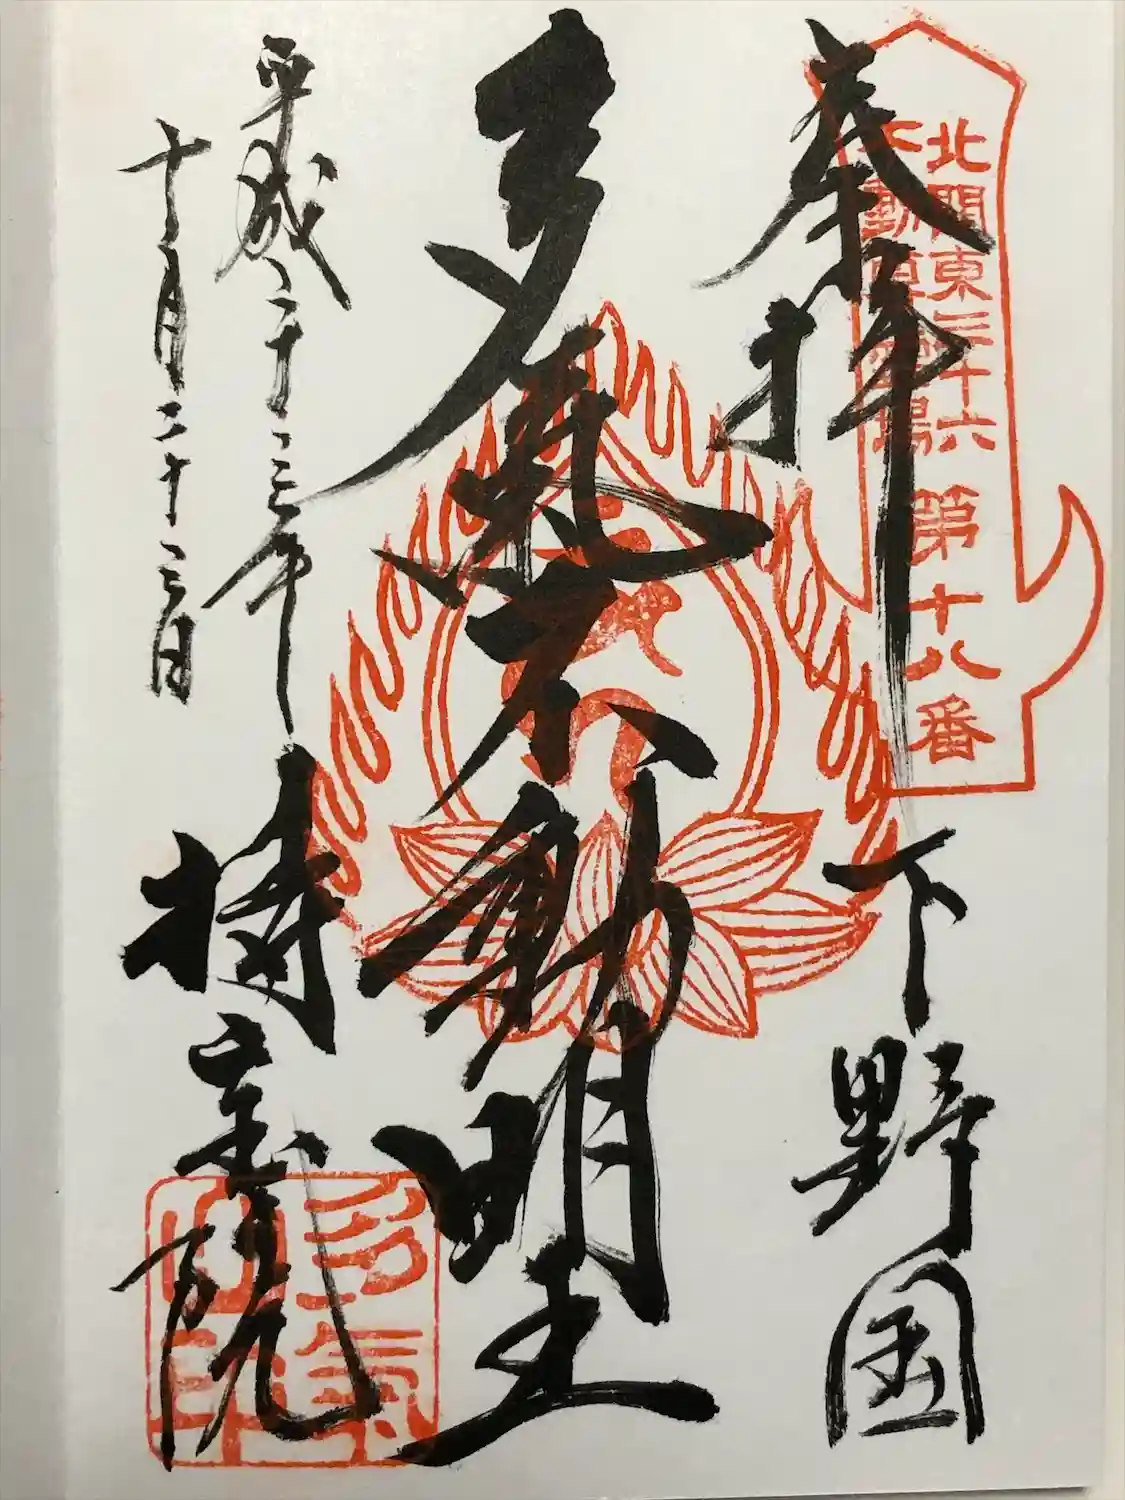 奉拝
下野国
北関東三十六
不動尊霊場
第十八番
多気不動明王
平成二十三年
十月二十三日
持宝院
多氣